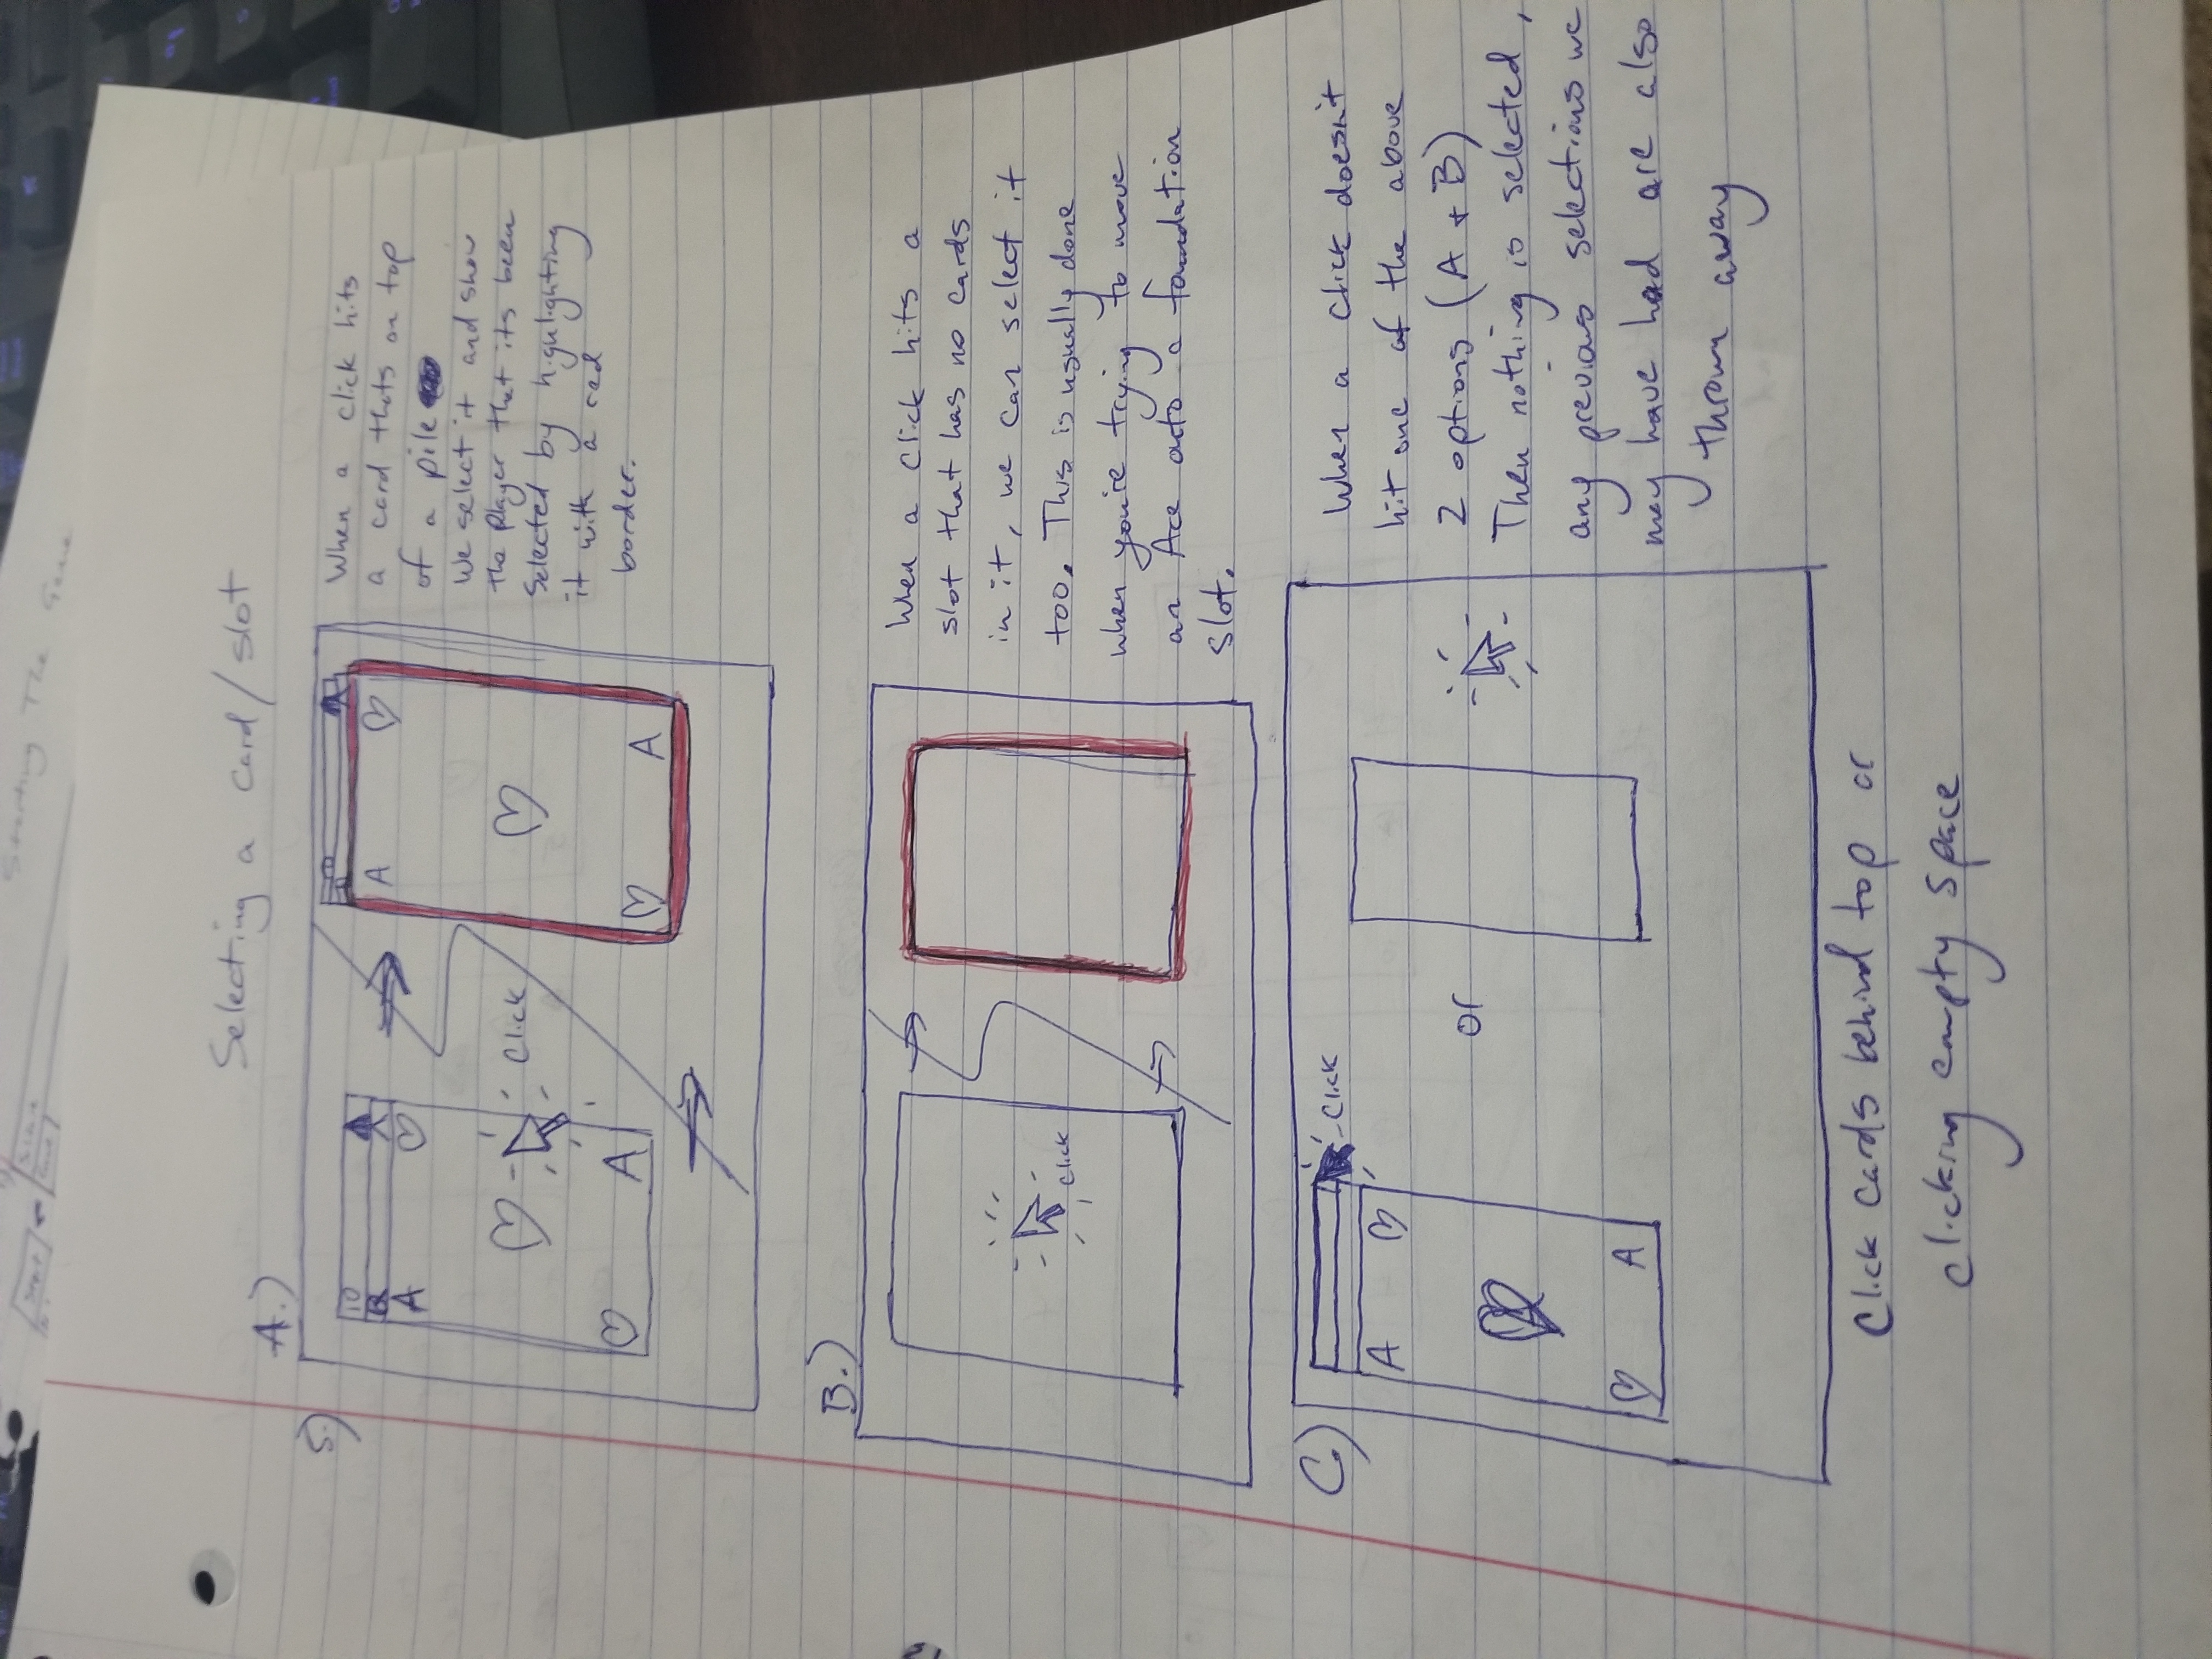 Starting The Game
Start
Selecting a card/slot
5.)
A.)
10
Q
A
Click
A
A
A
When a click hits
a card thats on top
of a pile
we select it and show
the player that its been
selected by highlighting
it with a red
border.
B.)
Click
When a click hits a
slot that has no cards
in it, we can select it
too. This is usually done
when you're trying to move
an Ace onto a foundation
slot.
C.)
Click
A
A
or
When a click doesn't
hit one of the above
2 options (A + B)
Then nothing is selected,
any previous selections we
may have had are also
thrown away
Click cards behind top or
clicking empty space